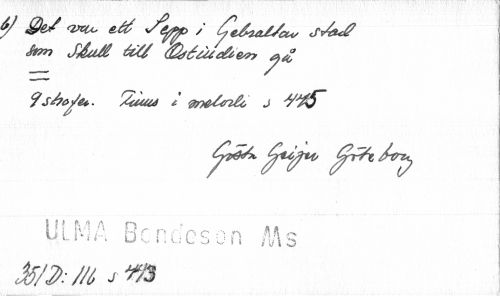 6) Det var ett Sepp i Gebraltar stad
som skull till Ostindien gå
=
9 strofer. Finns i melodi s 445
Gösta Geijer Göteborg
ULMA Bondeson Ms
351 D: 116 s 413